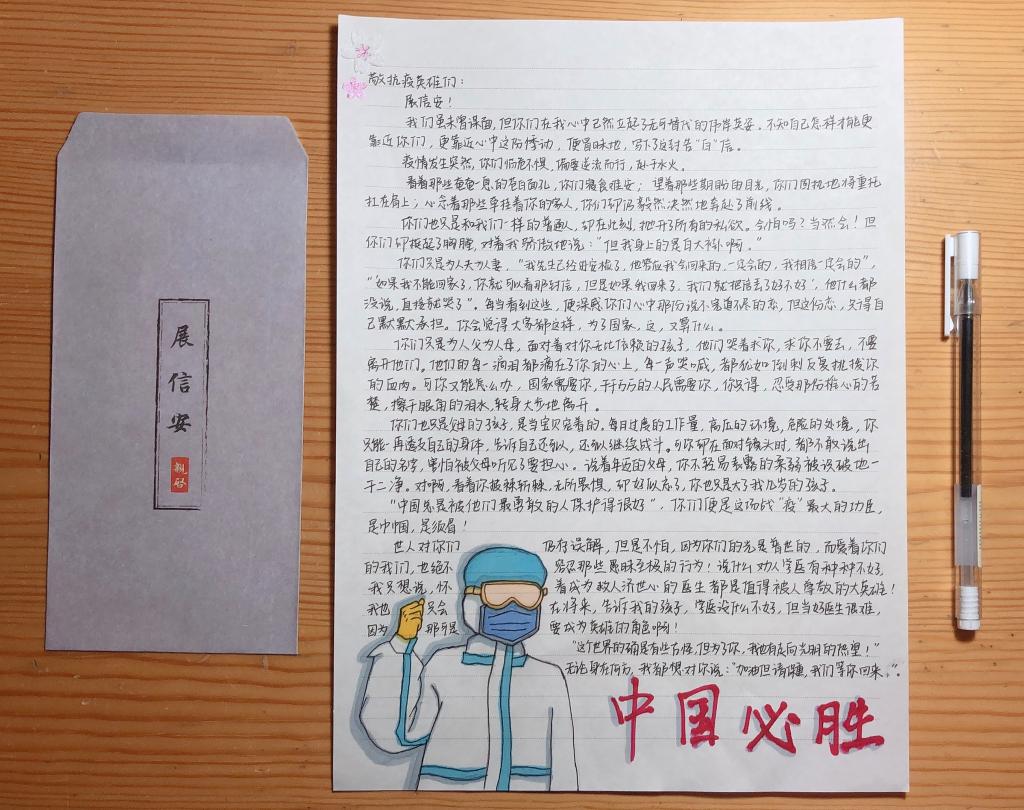 展信安
親啓
敬抗疫英雄们：
展信安！
我们虽未曾谋面，但你们在我心中已然立起了无可替代的伟岸英姿。不知自己怎样才能更
靠近你们，更靠近心中这份悸动，便冒昧地，写下了这封告“白”信。
疫情发生突然，你们临危不惧，偏要逆流而行，赴于水火。
看着那些奄奄一息的苍白面孔，你们寝食难安；望着那些期盼的目光，你们固执地将重托
扛在肩上；心念着那些牵挂着你的家人，你们却仍毅然决然地奔赴了前线。
你们也只是和我们一样的普通人，却在此刻，抛开了所有的私欲。会怕吗？当然会！但
你们却挺起了胸膛，对着我骄傲地说：“但我身上的是白大褂啊。”
你们只是为人夫为人妻，“我先生已经进舱了，他答应我会回来的，一定会的，我相信一定会的”，
“如果我不能回家了，你就可以看那封信，但是如果我回来了，我们就把信丢了好不好”，他什么都
没说，直接就哭了”。每当看到这些，便深感你们心中那份说不完道不尽的恋，但这份恋，只得自
己默默承担。你会觉得大家都这样，为了国家，这，又算什么。
你们只是为人父为人母，面对着对你无比信赖的孩子，他们哭着求你，求你不要去，不要
离开他们。他们的每一滴泪都滴在了你的心上，每一声哭喊，都犹如倒刺反复挑拨你
的血肉。可你又能怎么办，国家需要你，千千万万的人民需要你，你只得，忍受那份揪心的苦
楚，擦干眼角的泪水，转身大步地离开。
你们也只是父母的孩子，是当宝贝宠着的。每日过度的工作量，高压的环境，危险的处境，你
只能一再透支自己的身体，告诉自己还可以，还可以继续战斗。可你却在面对镜头时，都不敢说出
自己的名字，害怕被父母听见了要担心。说着身边的父母，你不轻易表露的柔弱被识破地一
干二净。对啊，看着你披荆斩棘，无所畏惧，却好似忘了，你也只是大了我几岁的孩子。
“中国总是被他们最勇敢的人保护得很好”，你们便是这场战“疫”最大的功臣，
是巾帼，是须眉！
世人对你们仍存误解，但是不怕，因为你们的光是普世的，而爱着你们
的我们，也绝不容忍那些愚昧至极的行为！说什么劝人学医有种种不好，
我只想说，怀着成为救人济世心的医生都是值得被人尊敬的大英雄！
我也只会在将来，告诉我的孩子，学医没什么不好，但当好医生很难，
因为那可是要成为英雄的角色啊！
“这个世界的确是有些古怪，但为了你，我也有走向光明的热望！”
无论身在何方，我都想对你说：“加油但请保重，我们等你回来。”
中国必胜